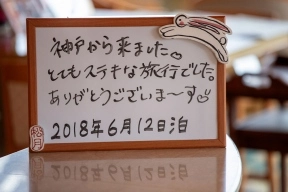 神戸から来ました♡
とてもステキな旅行でした。
ありがとうございま〜す♡
2018年6月12日泊
松月